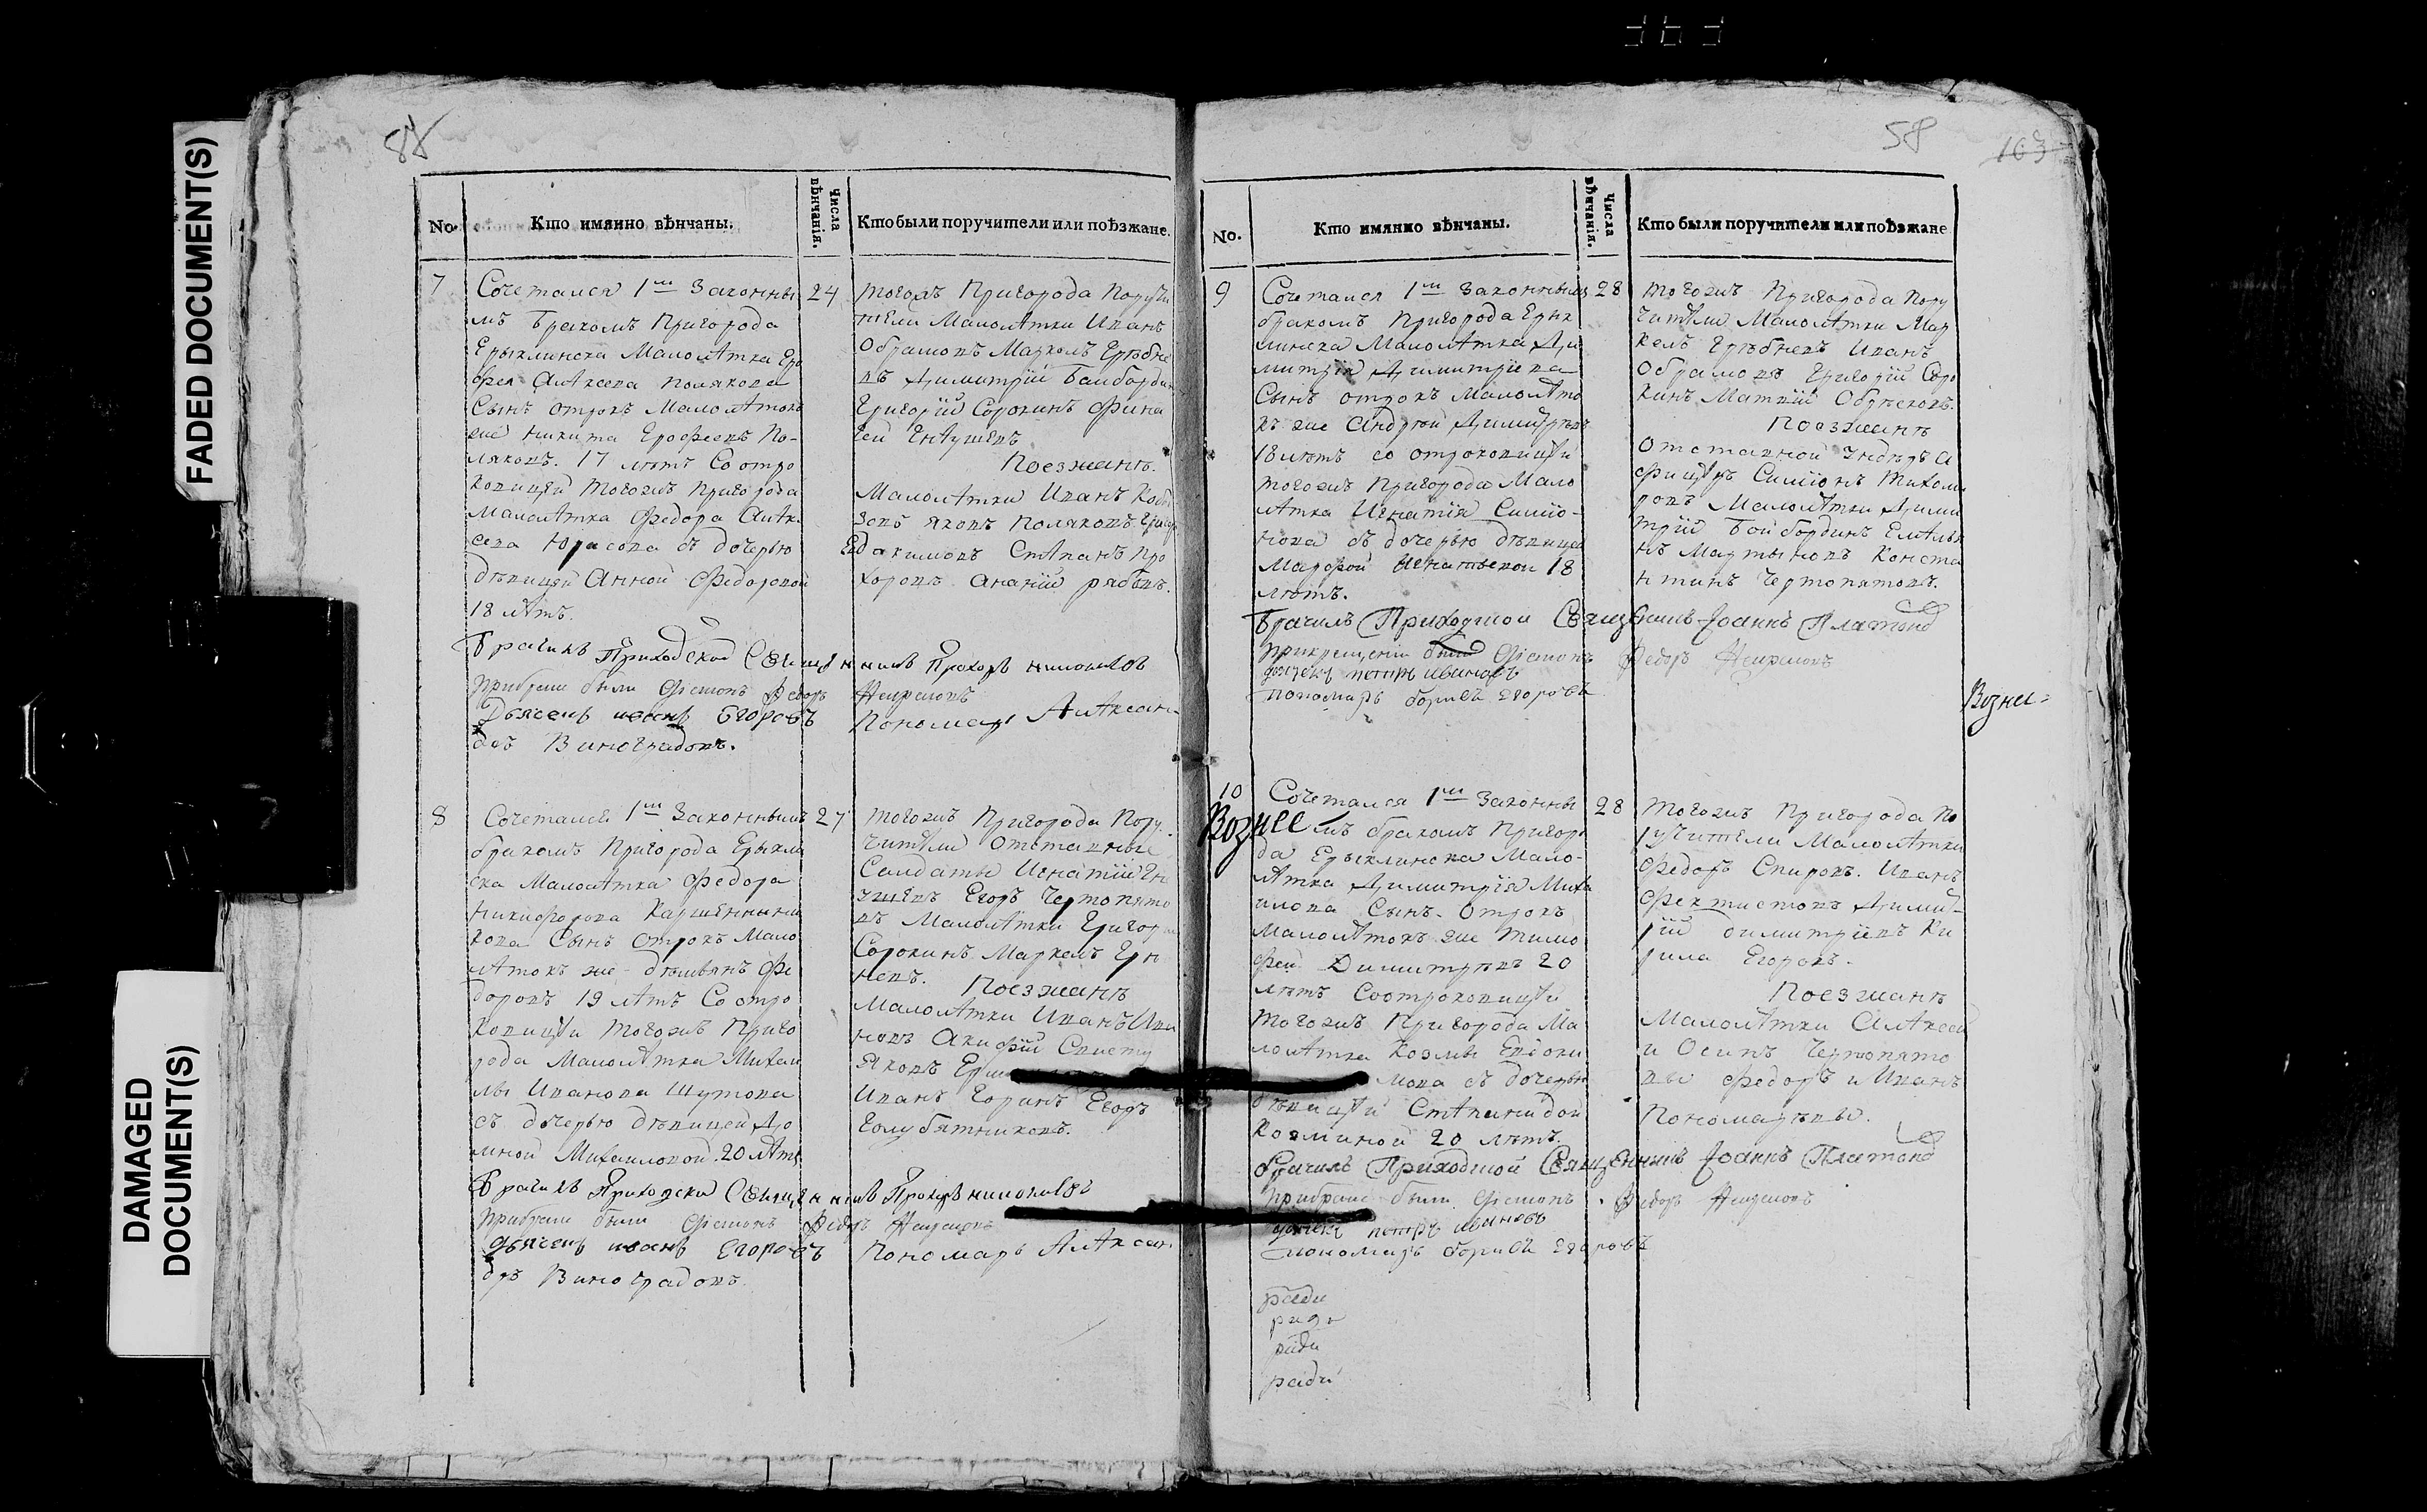 FADED DOCUMENT(S)
DAMAGED
DOCUMENT(S)
88
No.
Кто имянно вѣнчаны.
Числа
вѣнчанія.
Кто были поручители или поѣзжане.
7
Сочетался 1м Законны
24
мъ бракомъ Пригорода
Ерыклинска Малолѣтка Еро
фея Алѣксева полякова
Сынъ отрокъ Малолѣтокъ
же никита Ерофеевъ По-
ляковъ. 17 лѣтъ Со отро
ковицей тогожъ пригорода
малолѣтка Федора Алѣк
сева Юрасова съ дочерью
дѣвицей Анной Федоровой
18 лѣтъ.
тогожъ Пригорода Поручи
тели Малолѣтки Иванъ
Обрамовъ Маркелъ Грѣбне
въ Димитрій Баибординъ
Григорій Сорокинъ
Поезжанѣ.
Малолѣтки Иванъ
Яковъ Поляковъ
Евдакимовъ Степанъ Про
хоровъ Ананій рябовъ.
Брачилъ Приходской Священникъ Прохоръ
при браке были Федоръ
Дьячекъ иванъ Егоровъ
Пономарь Алѣксан
дръ Виноградовъ.
8
Сочетался 1м Законнымъ
27
бракомъ Пригорода Ерыкли
ска Малолѣтка Федора
никифорова
кова Сынъ Отрокъ Мало
лѣтокъ же Фе
доровъ 19 лѣтъ Со отро
ковицеи тогожъ Приго
рода Малолѣтка Михаи
лы Иванова Шутова
съ дочерью дѣвицей До
мной Михаиловой 20 лѣтъ
тогожъ Пригорода Пору
чители Отставные
Салдаты Игнатій
Егоръ Чертопято
въ Малолѣтки Григорій
Сорокинъ Маркелъ
невъ. Поезжанѣ
Малолѣтки Иванъ Ива
новъ
Яковъ
Иванъ Горинъ Егоръ
Голубятниковъ.
Брачилъ Приходски Священникъ Прохоръ
при браке были Федоръ
дьячекъ иванъ Егоровъ
Пономарь Алѣксан
дръ Виноградовъ.
58
163
No.
Кто имянно вѣнчаны.
Числа
вѣнчанія.
Кто были поручители или поѣзжане
9
Сочетался 1м Законнымъ
28
бракомъ Пригорода Ерык
линска Малолѣтка Ди
митрія Димитріева
Сынъ отрокъ Малолѣто
къ же Андрей Димитріевъ
18 лѣтъ со отроковицеи
тогожъ Пригорода Мало
лѣтка Игнатія Симіо-
нова съ дочерью дѣвицеи
Марфой Игнатьевой 18
лѣтъ.
тогожъ Пригорода Пору
чители Малолѣтки Мар
келъ Грѣбневъ Иванъ
Обрамовъ Григорій Соро
кинъ Матвій
Поезжанѣ
Отставной
Симіонъ Тихоми
ровъ Малолѣтки Дими
трій Боибординъ Емѣлья
нъ Мартыновъ Конста
нтинъ Чертопятовъ.
Брачилъ Приходской Священникъ Іоаннъ Платоно
при крещеніи были Федоръ
дьячекъ петръ ивановъ
пономарь борисъ егоровъ
Вознес=
10
Сочетался 1м Законны
28
Вознес
мъ бракомъ Пригоро
да Ерыклинска Мало-
лѣтка Димитрія Миха
илова Сынъ Отрокъ
малолѣтокъ же Тимо
фей Димитріевъ 20
лѣтъ Соотроковицеи
тогожъ Пригорода Ма
лолѣтка Козмы Евдоки
мова съ дочерью
дѣвицеи Стѣпанидой
Козминой 20 лѣтъ.
тогожъ Пригорода По
ручители Малолѣтки
Федоръ Спировъ. Иванъ
Фектистовъ Димит-
рій димитріевъ Ки
рила Егоровъ.
Поезжанѣ
Малолѣтки Алѣксеи
и Осипъ Чертопято
вы Федоръ и Иванъ
Пономаревы.
Брачилъ Приходской Священникъ Іоаннъ Платоно
при браке были Федоръ
дьячекъ петръ ивановъ
пономарь борисъ егоровъ
ради
ради
ради
ради